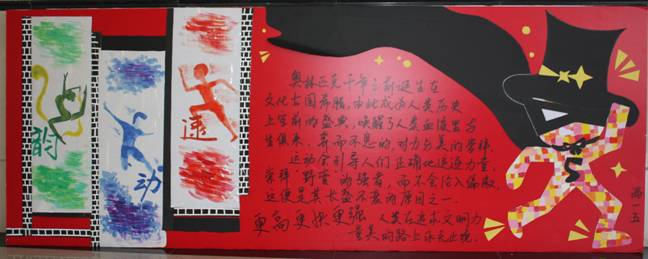 韵
动
速
奥林匹克千年之前诞生在
文化古国希腊,由此成为人类历史
上空前的盛典,唤醒了人类血液里与
生俱来、奔而不息的,对力与美的崇拜。
运动会引导人们正确地追逐力量,
崇拜野蛮的强者,而不会陷入
这便是其长盛不衰的原因之一。
更高更快更强 人类在追求文明力
量美的路上永无止境。
高一5